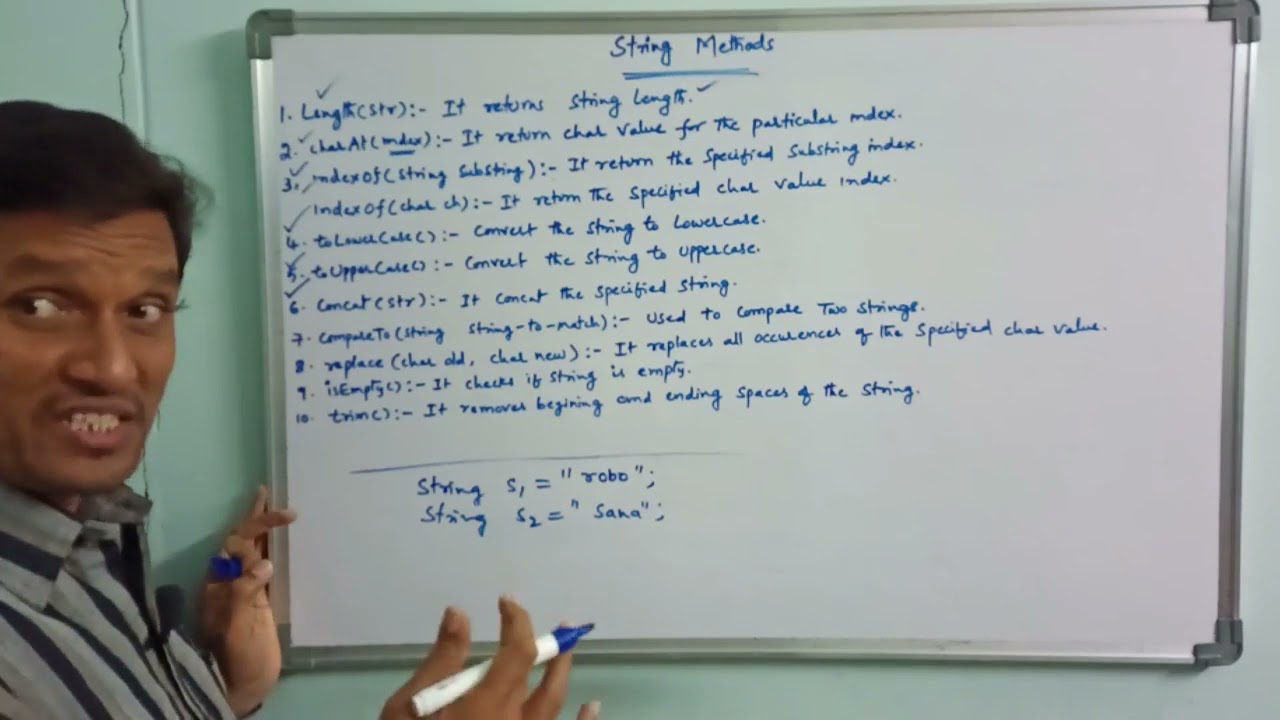 String Methods
1. Length(str):- It returns string length.
2. charAt(index):- It return char value for the particular index.
3. indexOf(string substing):- It return the specified substring index.
indexOf(char ch):- It return the specified char value index.
4. toLowerCase():- Convert the string to Lowercase.
5. toUpperCase():- Convert the string to uppercase.
6. Concat(str):- It concat the specified string.
7. compareTo(string string-to-match):- used to compare Two strings.
8. replace(char old, char new):- It replaces all occurences of the specified char value.
9. isEmpty():- It checks if string is empty.
10. trim():- It removes begining and ending spaces of the string.
String s1 = "robo";
String s2 = "sana";